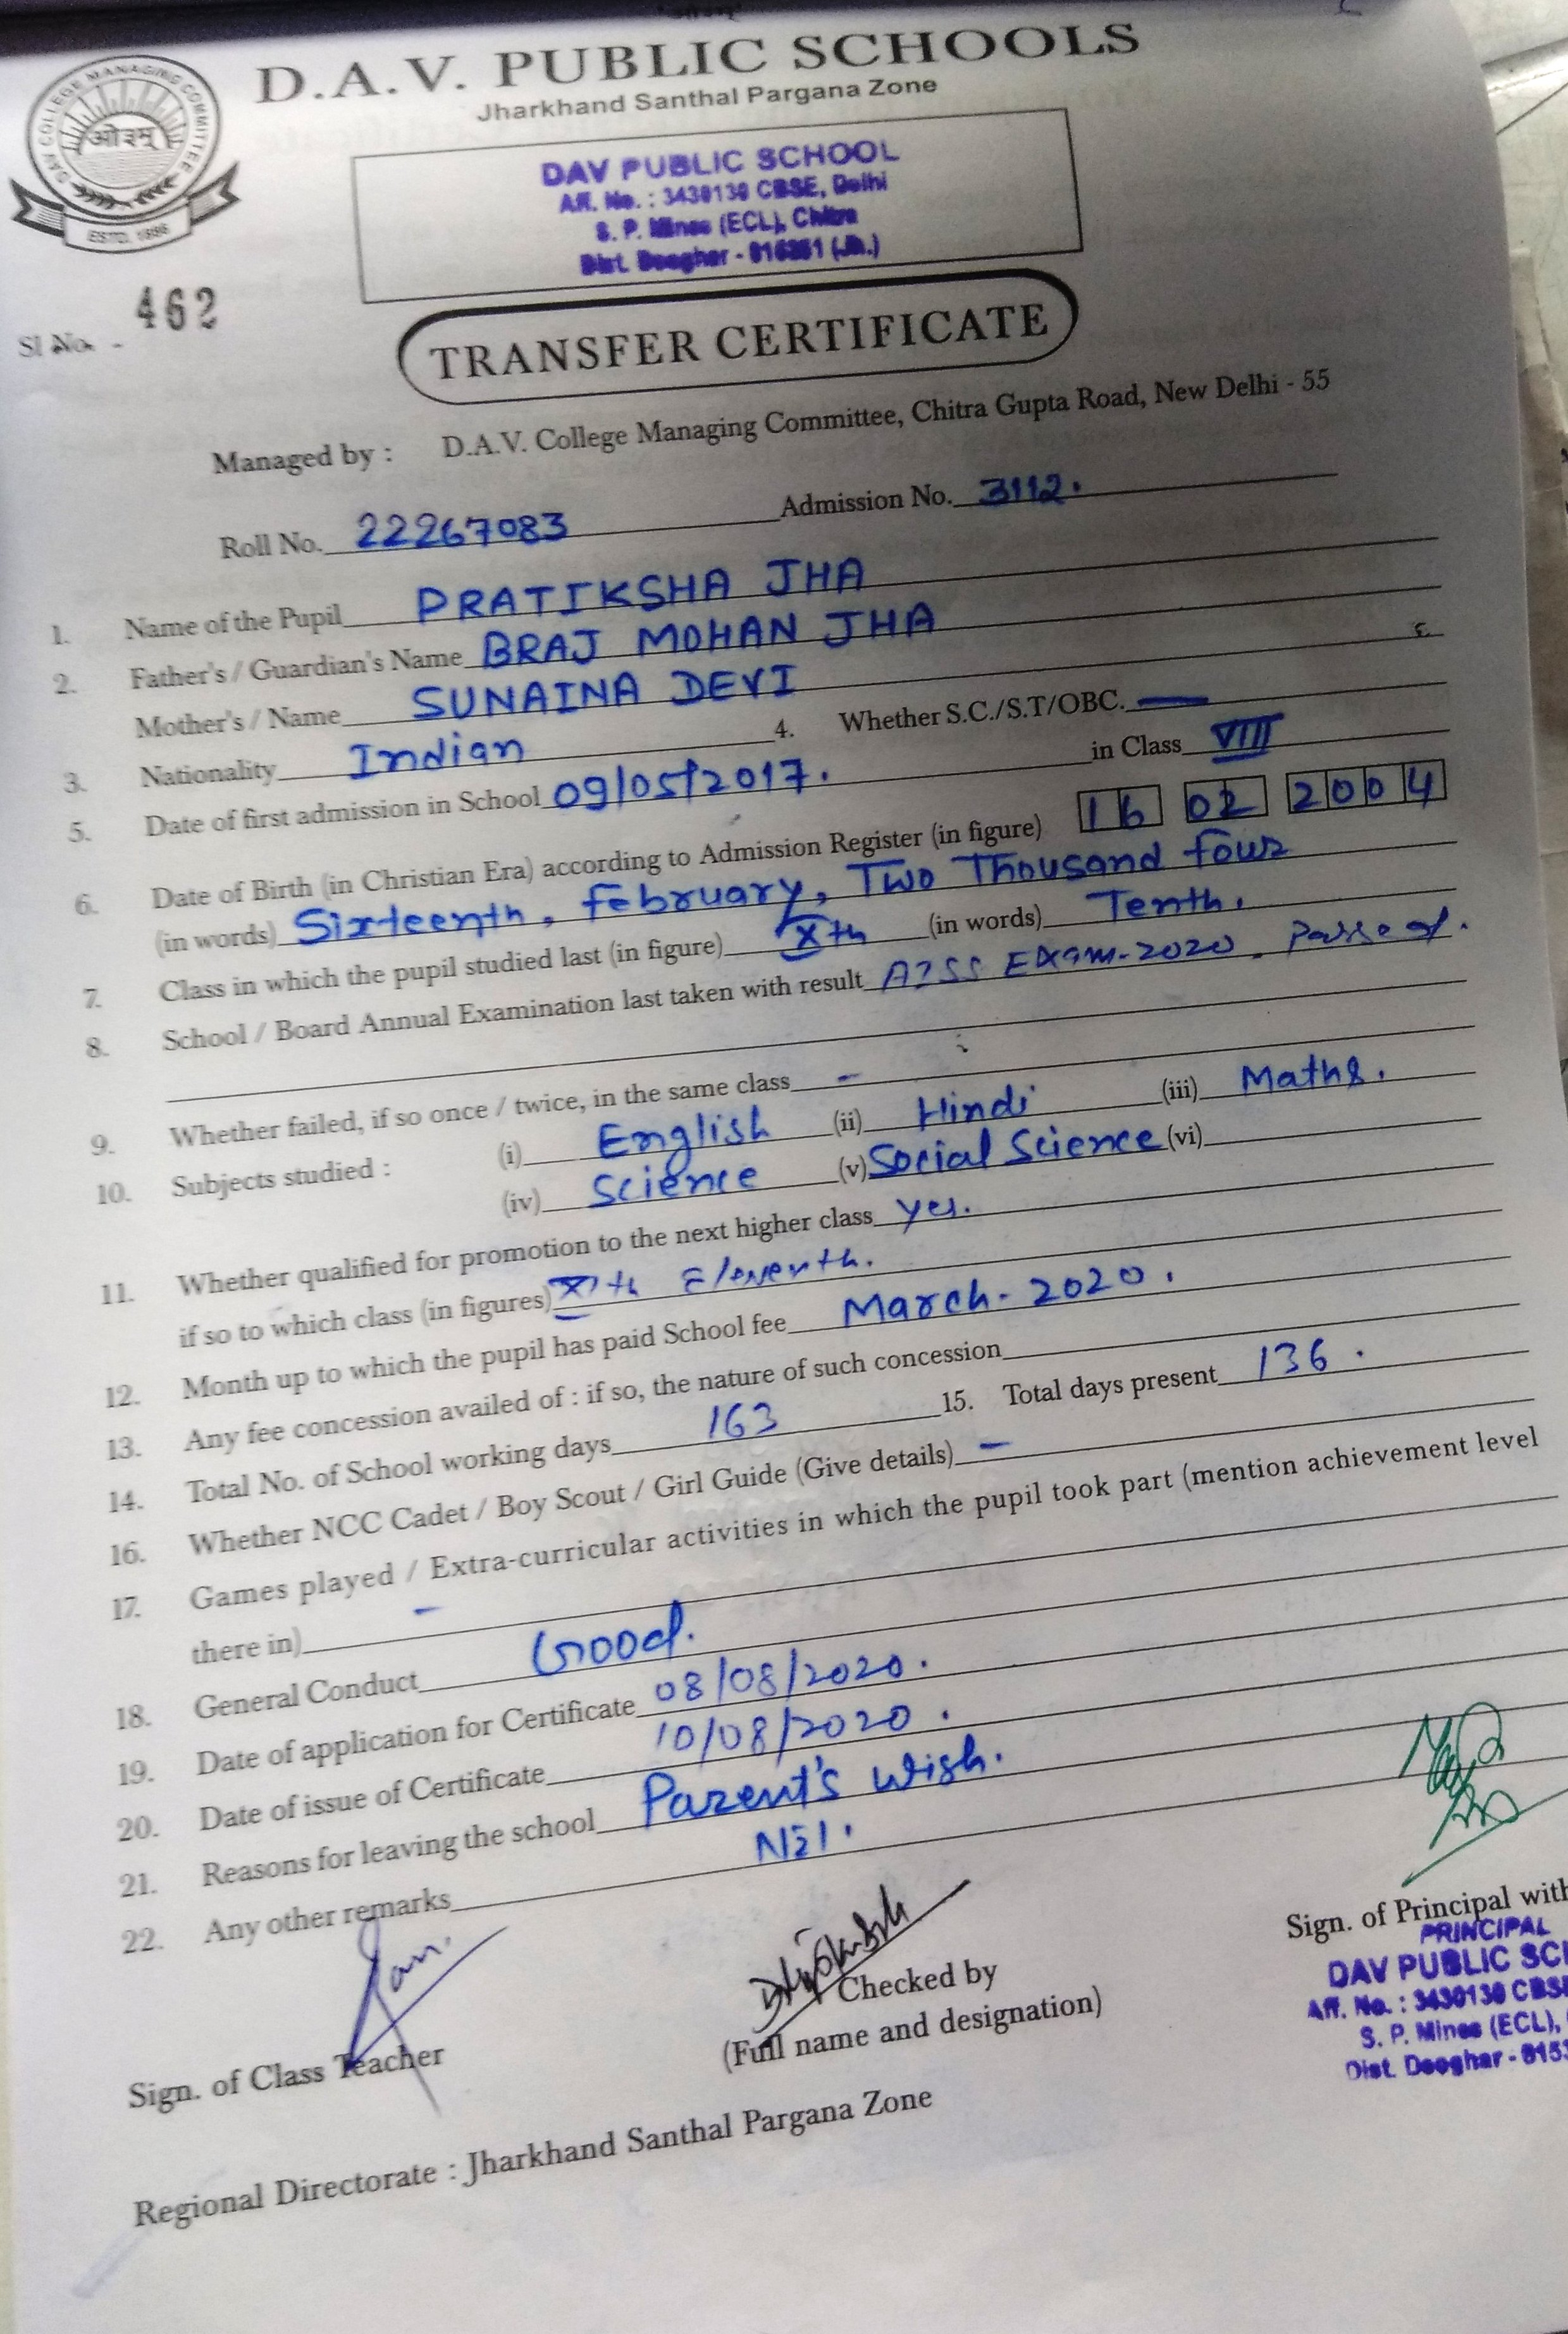 DAV COLLEGE MANAGING COMMITTEE
ओ३म्
ESTD. 1886
D.A.V. PUBLIC SCHOOLS
Jharkhand Santhal Pargana Zone
DAV PUBLIC SCHOOL
Aff. No. : 3430130 CBSE, Delhi
S. P. Mines (ECL), Chitra
Dist. Deoghar - 815351 (Jh.)
Sl No. - 462
TRANSFER CERTIFICATE
Managed by : D.A.V. College Managing Committee, Chitra Gupta Road, New Delhi - 55
Roll No. 22267083 Admission No. 3112.
1. Name of the Pupil PRATIKSHA JHA
2. Father's / Guardian's Name BRAJ MOHAN JHA
Mother's / Name SUNAINA DEVI
3. Nationality Indian 4. Whether S.C./S.T/OBC. —
5. Date of first admission in School 09/05/2017. in Class VIII
6. Date of Birth (in Christian Era) according to Admission Register (in figure) 16 02 2004
(in words) Sixteenth, February, Two Thousand Four
7. Class in which the pupil studied last (in figure) Xth (in words) Tenth.
8. School / Board Annual Examination last taken with result Exam-2020. Passed.
9. Whether failed, if so once / twice, in the same class -
10. Subjects studied : (i) English (ii) Hindi (iii) Maths.
(iv) Science (v) Social Science (vi)
11. Whether qualified for promotion to the next higher class yes.
if so to which class (in figures) XIth Eleventh.
12. Month up to which the pupil has paid School fee March-2020.
13. Any fee concession availed of : if so, the nature of such concession
14. Total No. of School working days 163 15. Total days present 136.
16. Whether NCC Cadet / Boy Scout / Girl Guide (Give details) -
17. Games played / Extra-curricular activities in which the pupil took part (mention achievement level
there in) -
18. General Conduct Good.
19. Date of application for Certificate 08/08/2020.
20. Date of issue of Certificate 10/08/2020.
21. Reasons for leaving the school Parent's Wish.
22. Any other remarks Nil.
Sign. of Class Teacher
Checked by
(Full name and designation)
Sign. of Principal with
PRINCIPAL
DAV PUBLIC SC
Aff. No. : 3430130 CBS
S. P. Mines (ECL),
Dist. Deoghar - 8153
Regional Directorate : Jharkhand Santhal Pargana Zone